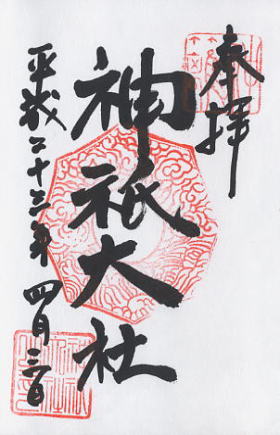 奉拝
神祇大社
平成二十三年 四月三日